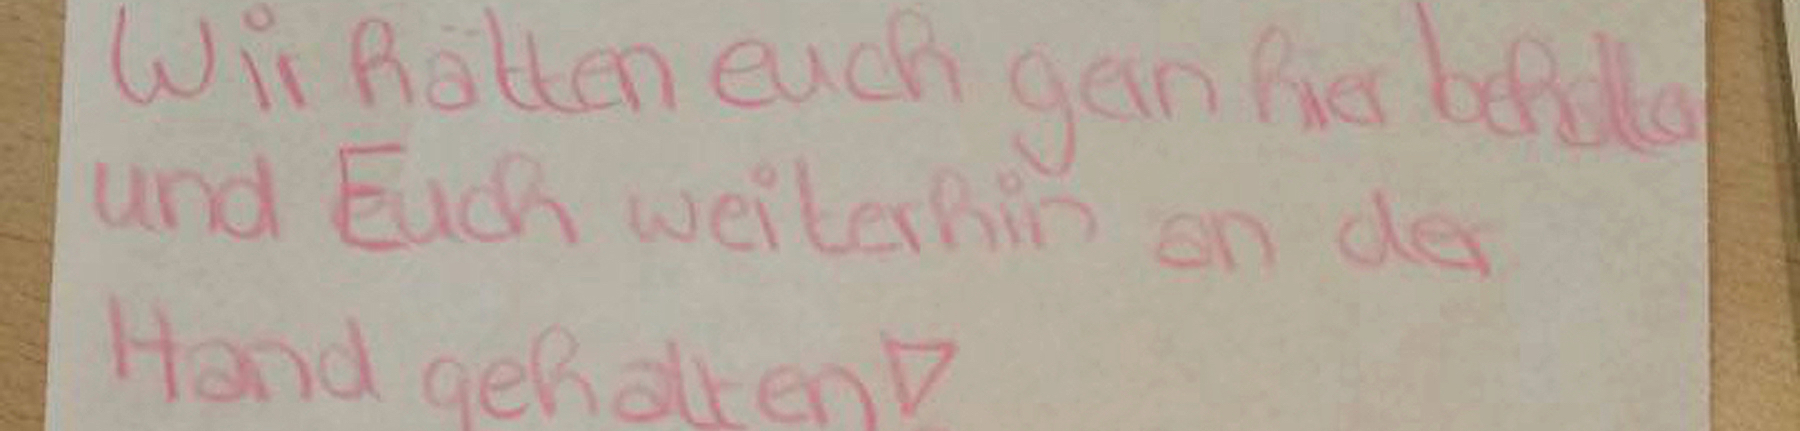 Wir hätten euch gern hier behalten
und Euch weiterhin an der
Hand gehalten!